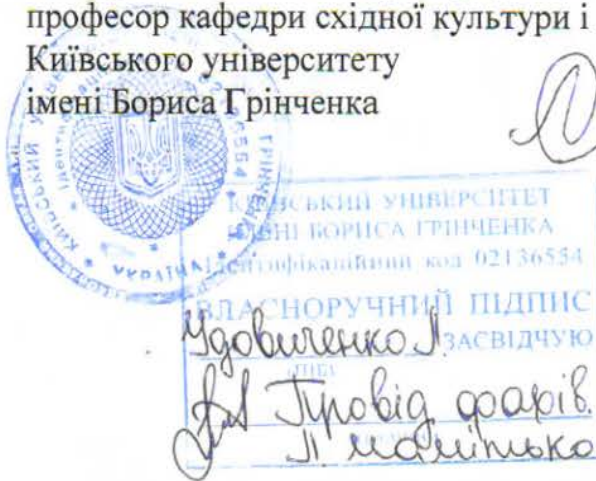 професор кафедри східної культури і
Київського університету
імені Бориса Грінченка
КИЇВСЬКИЙ УНІВЕРСИТЕТ
ІМЕНІ БОРИСА ГРІНЧЕНКА
Ідентифікаційний код 02136554
ВЛАСНОРУЧНИЙ ПІДПИС
Удовиченко Л.
ЗАСВІДЧУЮ
(ПІБ)
Провід фахів.
УКРАЇНА